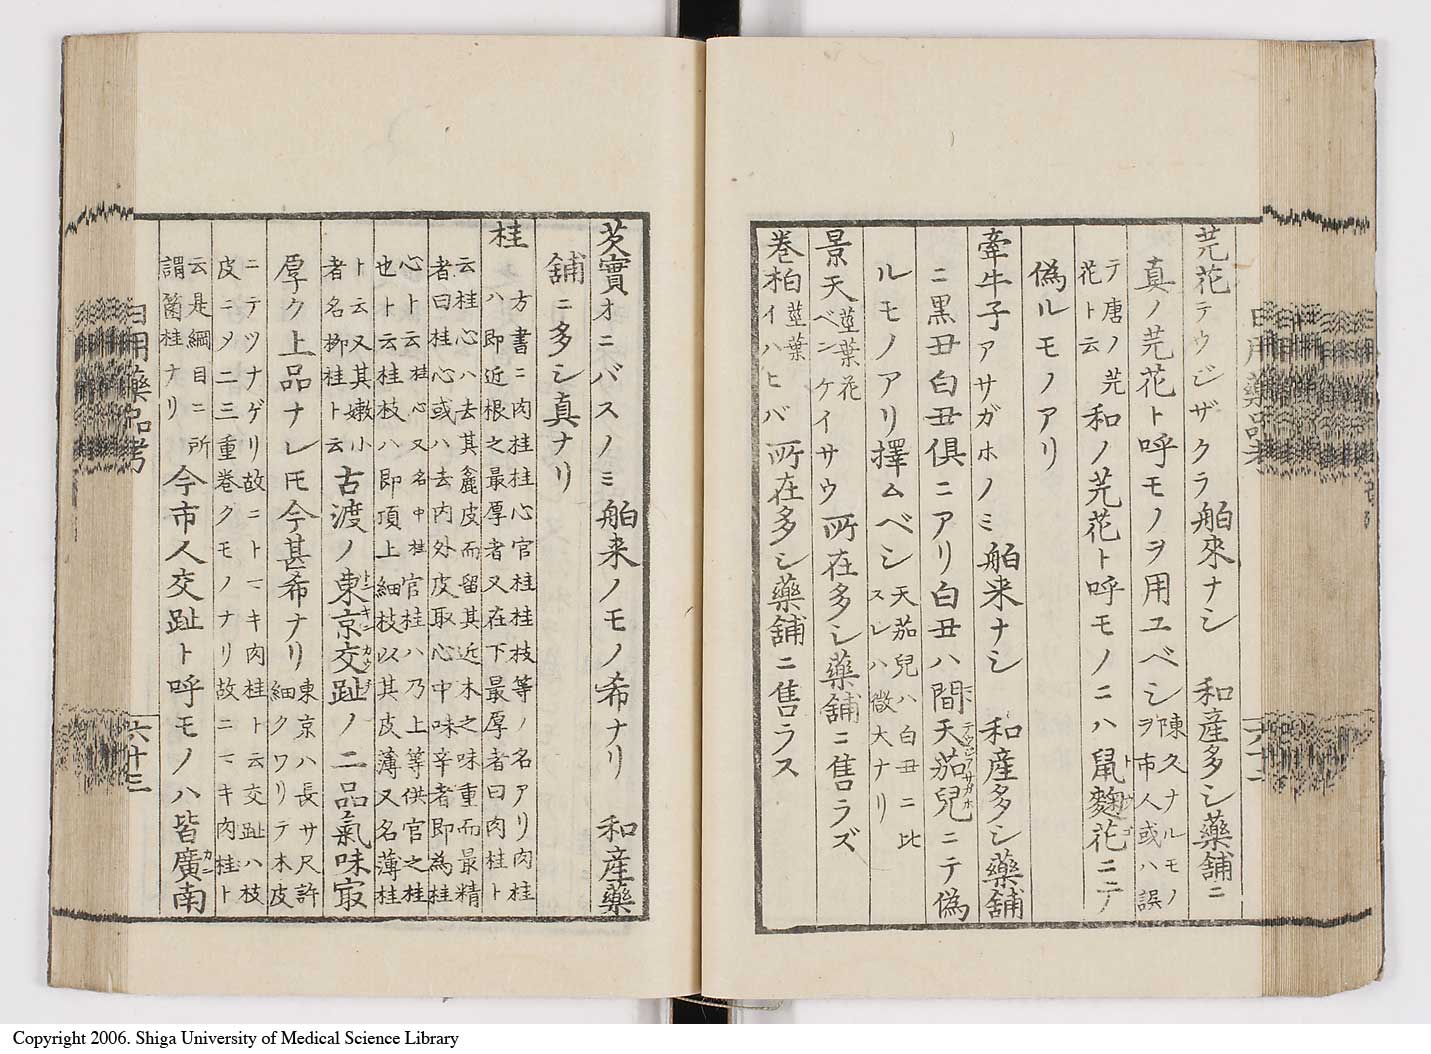 芫花テウジザクラ 舶來ナシ 和産多シ藥舗ニ
真ノ芫花ト呼モノヲ用ユベシ陳久ナルモノヲ市人或ハ誤
テ唐ノ芫花ト云 和ノ芫花ト呼モノニハ鼠麴花ニテ
偽ルモノアリ
牽牛子アサガホノミ 舶来ナシ 和産多シ藥舗
ニ黒丑白丑倶ニアリ白丑ハ間天茄兒ニテ偽
ルモノアリ擇ムベシ天茄兒ハ白丑ニ比スレハ微大ナリ
景天莖葉花ベンケイサウ 所在多シ藥舗ニ售ラズ
巻柏莖葉イハヒバ 所在多シ藥舗ニ售ラス
芡實オニバスノミ 舶来ノモノ希ナリ 和産藥
舗ニ多シ真ナリ
桂 方書ニ肉桂桂心官桂桂枝等ノ名アリ肉桂
ハ即近根之最厚者又在下最厚者曰肉桂ト
云桂心ハ去其麁皮而留其近木之味重而最精
者曰桂心或ハ去内外皮取心中味辛者即為桂
心ト云桂心又名中桂官桂ハ乃上等供官之桂
也ト云桂枝ハ即頂上細枝以其皮薄又名薄桂
ト云又其嫩小者名栁桂ト云 古渡ノ東京交趾ノ二品氣味㝡
厚ク上品ナレモ今甚希ナリ東京ハ長サ尺許細クワリテ本皮
ニテツナゲリ故ニトマキ肉桂ト云交趾ハ枝
皮ニメ二三重巻クモノナリ故ニマキ肉桂ト
云是綱目ニ所謂箘桂ナリ 今市人交趾ト呼モノハ皆廣南
日用藥品考
六十三